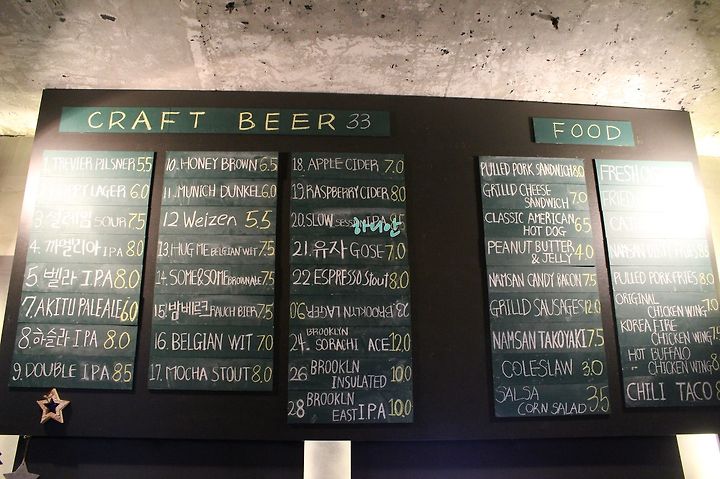 CRAFT BEER 33
1. TREVIER PILSNER 5.5
LAGER 6.0
3. 설레임 SOUR 7.5
4. 까멜리아 IPA 8.0
5. 벨라 IPA 8.0
7. AKITU PALE ALE 6.0
8. 하슬라 IPA 8.0
9. DOUBLE IPA 8.5
10. HONEY BROWN 6.5
11. MUNICH DUNKEL 6.0
12 Weizen 5.5
13. HUG ME BELGIAN WIT 7.5
14. SOME&SOME BROWN ALE 7.5
15. 밤베르크 RAUCH BIER 7.5
16. BELGIAN WIT 7.0
17. MOCHA STOUT 8.0
18. APPLE CIDER 7.0
19. RASPBERRY CIDER 8.0
20. SLOW SESSION IPA
21. 유자 GOSE 7.0
22 ESPRESSO Stout 8.0
23 BROOKLYN LAGER 9.0
24. BROOKLYN SORACHI ACE 12.0
26 BROOKLN INSULATED 10.0
28 BROOKLN EAST I.P.A 10.0
FOOD
PULLED PORK SANDWICH 8.0
GRILLED CHEESE
SANDWICH 7.0
CLASSIC AMERICAN
HOT DOG 6.5
PEANUT BUTTER
& JELLY 4.0
NAMSAN CANDY BACON 7.5
GRILLD SAUSAGES 12.0
NAMSAN TAKOYAKI 7.5
COLESLAW 3.0
SALSA
CORN SALAD 3.5
FRESH
FRIED
NAMSAN FRIES
PULLED PORK FRIES 8.0
ORIGINAL
CHICKEN WING 7.0
KOREA FIRE
CHICKEN WING 7.5
HOT BUFFALO
CHICKEN WING 8
CHILI TACO 8